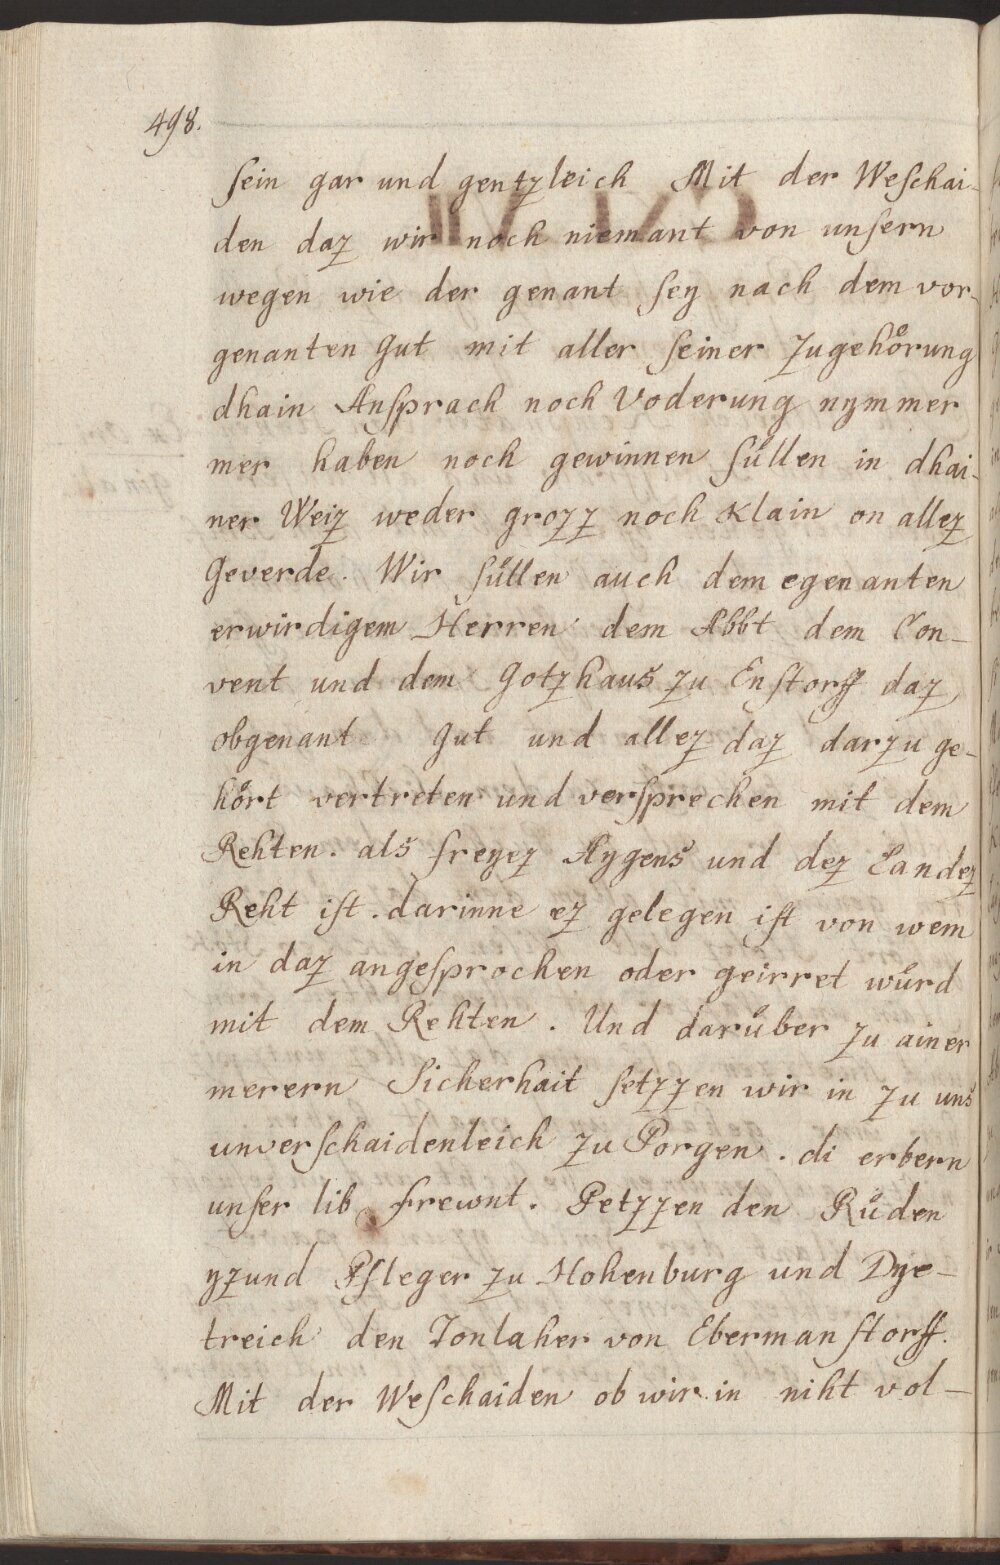 498.
sein gar und gentzleich Mit der Weschai-
den daz wir noch niemant von unsern
wegen wie der genant sey nach dem vor-
genanten Gut mit aller seiner Zugehörung
dhain Ansprach noch Voderung nymmer
mer haben noch gewinnen süllen in dhai-
ner Weiz weder grozz noch klain on allez
Geverde. Wir süllen auch dem egenanten
erwirdigem Herren dem Abbt dem Con-
vent und dem Gotzhaus zu Enstorff daz
obgenant Gut und allez daz darzu ge-
hört vertreten und versprechen mit dem
Rehten. als freyez Aygens und dez Landez
Reht ist. darinne ez gelegen ist von wem
in daz angesprochen oder geirret würd
mit dem Rehten. Und darüber zu ainer
merern Sicherhait setzzen wir in zu uns
unverschaidenleich zu Porgen. di erbern
unser lib frewnt. Petzzen den Rüden
yzund Pfleger zu Hohenburg und Dye-
treich den Zonlaher von Ebermanstorff.
Mit der Weschaiden ob wir in niht vol-